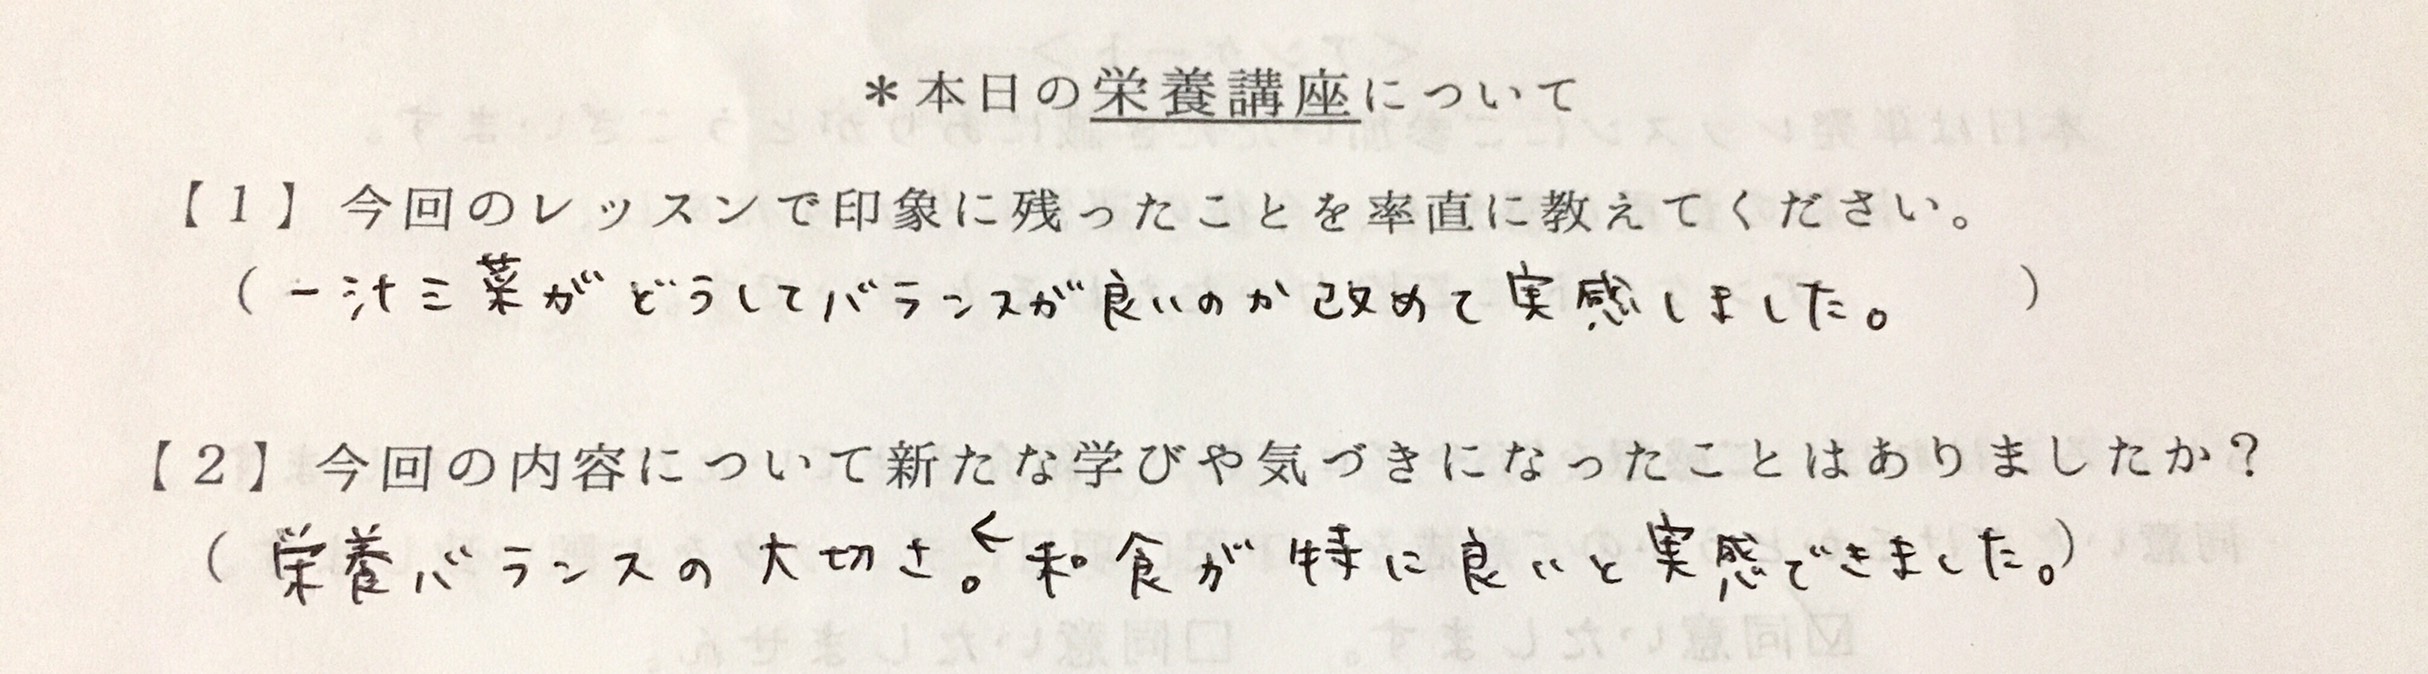 ＊本日の栄養講座について
【１】今回のレッスンで印象に残ったことを率直に教えてください。
（一汁三菜がどうしてバランスが良いのか改めて実感しました。）
【２】今回の内容について新たな学びや気づきになったことはありましたか？
（栄養バランスの大切さ。く和食が特に良いと実感できました。）